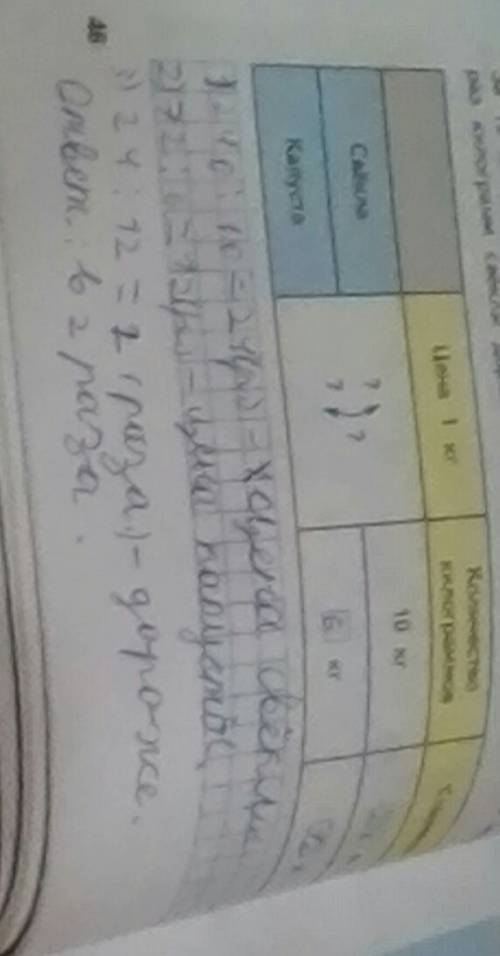 раз килограмм свёклы
Цена 1 кг
Количество килограммов
Свёкла
?
10 кг
?
Капуста
?
6 кг
:10=24(р)- цена свёклы
2)72:6=12(р)- цена капусты
3) 24:12=2 (раза)- дороже.
Ответ: в 2 раза.
46